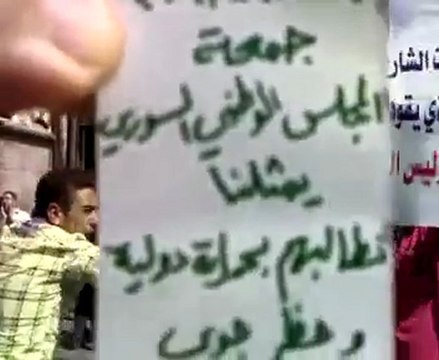 جمعة
المجلس الوطني السوري
يمثلنا
نطالبهم بحماية دولية
وحظر جوي
ت الشار
ي يقود
وليس ال